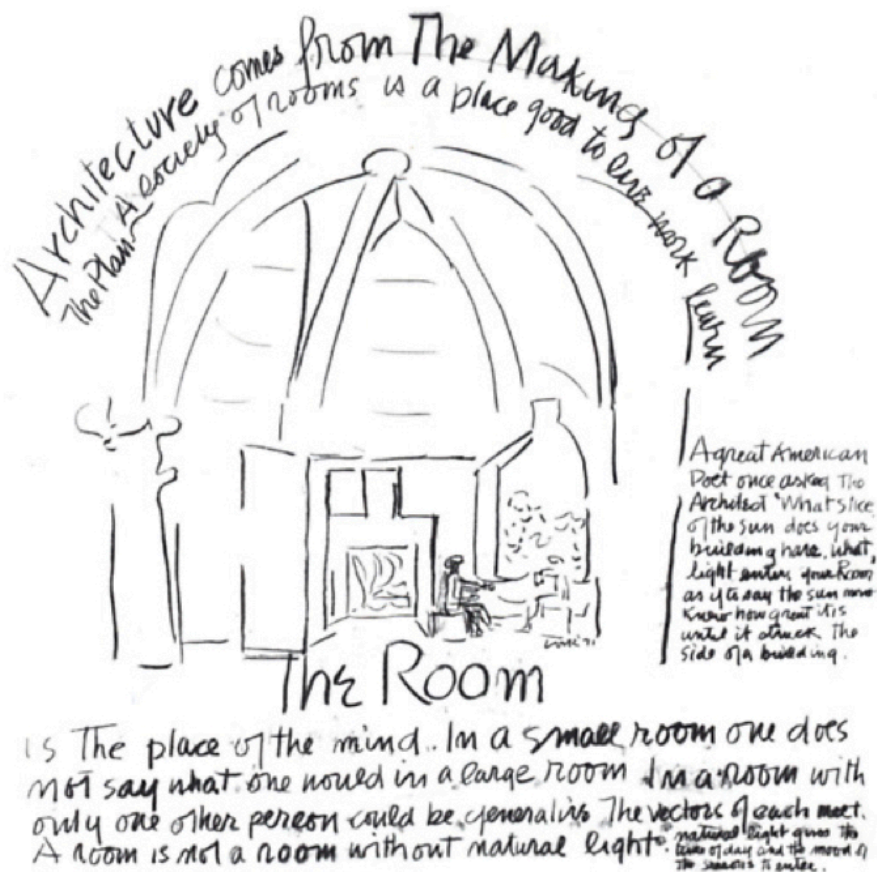 Architecture comes from The Making of a Room
The Plan A society of rooms is a place good to live work learn
A great American
Poet once asked The
Architect 'What slice
of the sun does your
building have, what
light enters your Room'
as if to say the sun never
knew how great it is
until it struck the
side of a building.
The Room
is The place of the mind. In a small room one does
not say what one would in a large room In a room with
only one other person could be generative The vectors of each meet.
A room is not a room without natural light.
natural light gives the
time of day and the mood of
the seasons to enter.